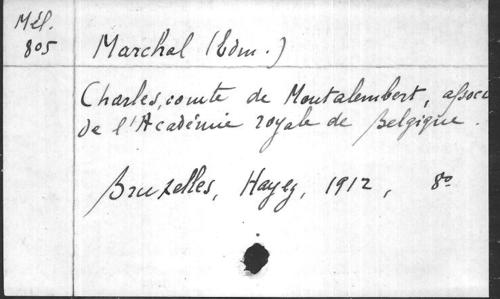 Mél.
805
Marchal (Edm.)
Charles, comte de Montalembert, associ
de l'Académie royale de Belgique.
Bruxelles, Hayez, 1912, 8º